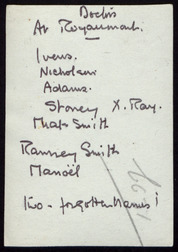 Doctors
At Royaumont.
Ivens.
Nicholson
Adams.
Storey X. Ray.
Smith
Ramsey Smith
Manoël
two - forgotten names!